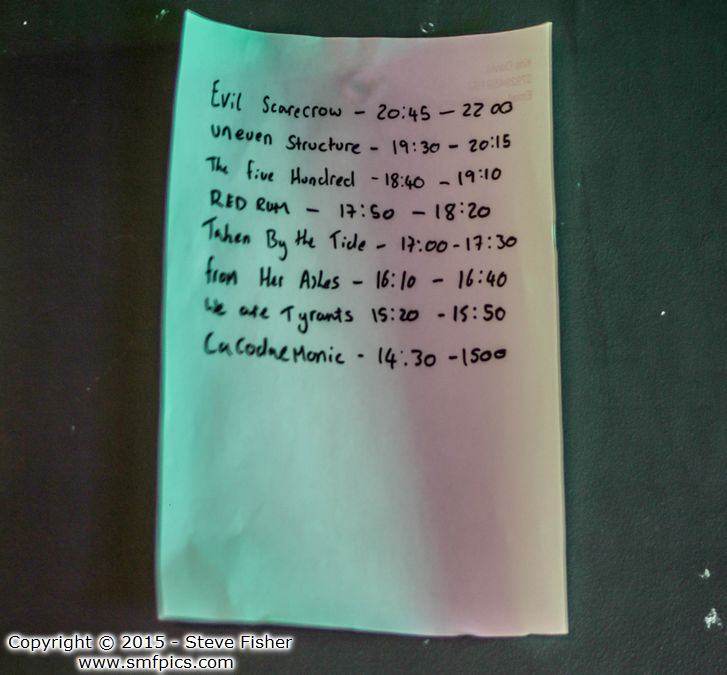 Evil Scarecrow - 20:45 - 22 00
uneven Structure - 19:30 - 20:15
The five Hundred - 18:40 - 19:10
RED RUM - 17:50 - 18:20
Taken By the Tide - 17:00 - 17:30
from Her Ashes - 16:10 - 16:40
We are Tyrants 15:20 - 15:50
Cacodaemonic - 14:30 - 1500
Copyright © 2015 - Steve Fisher
www.smfpics.com